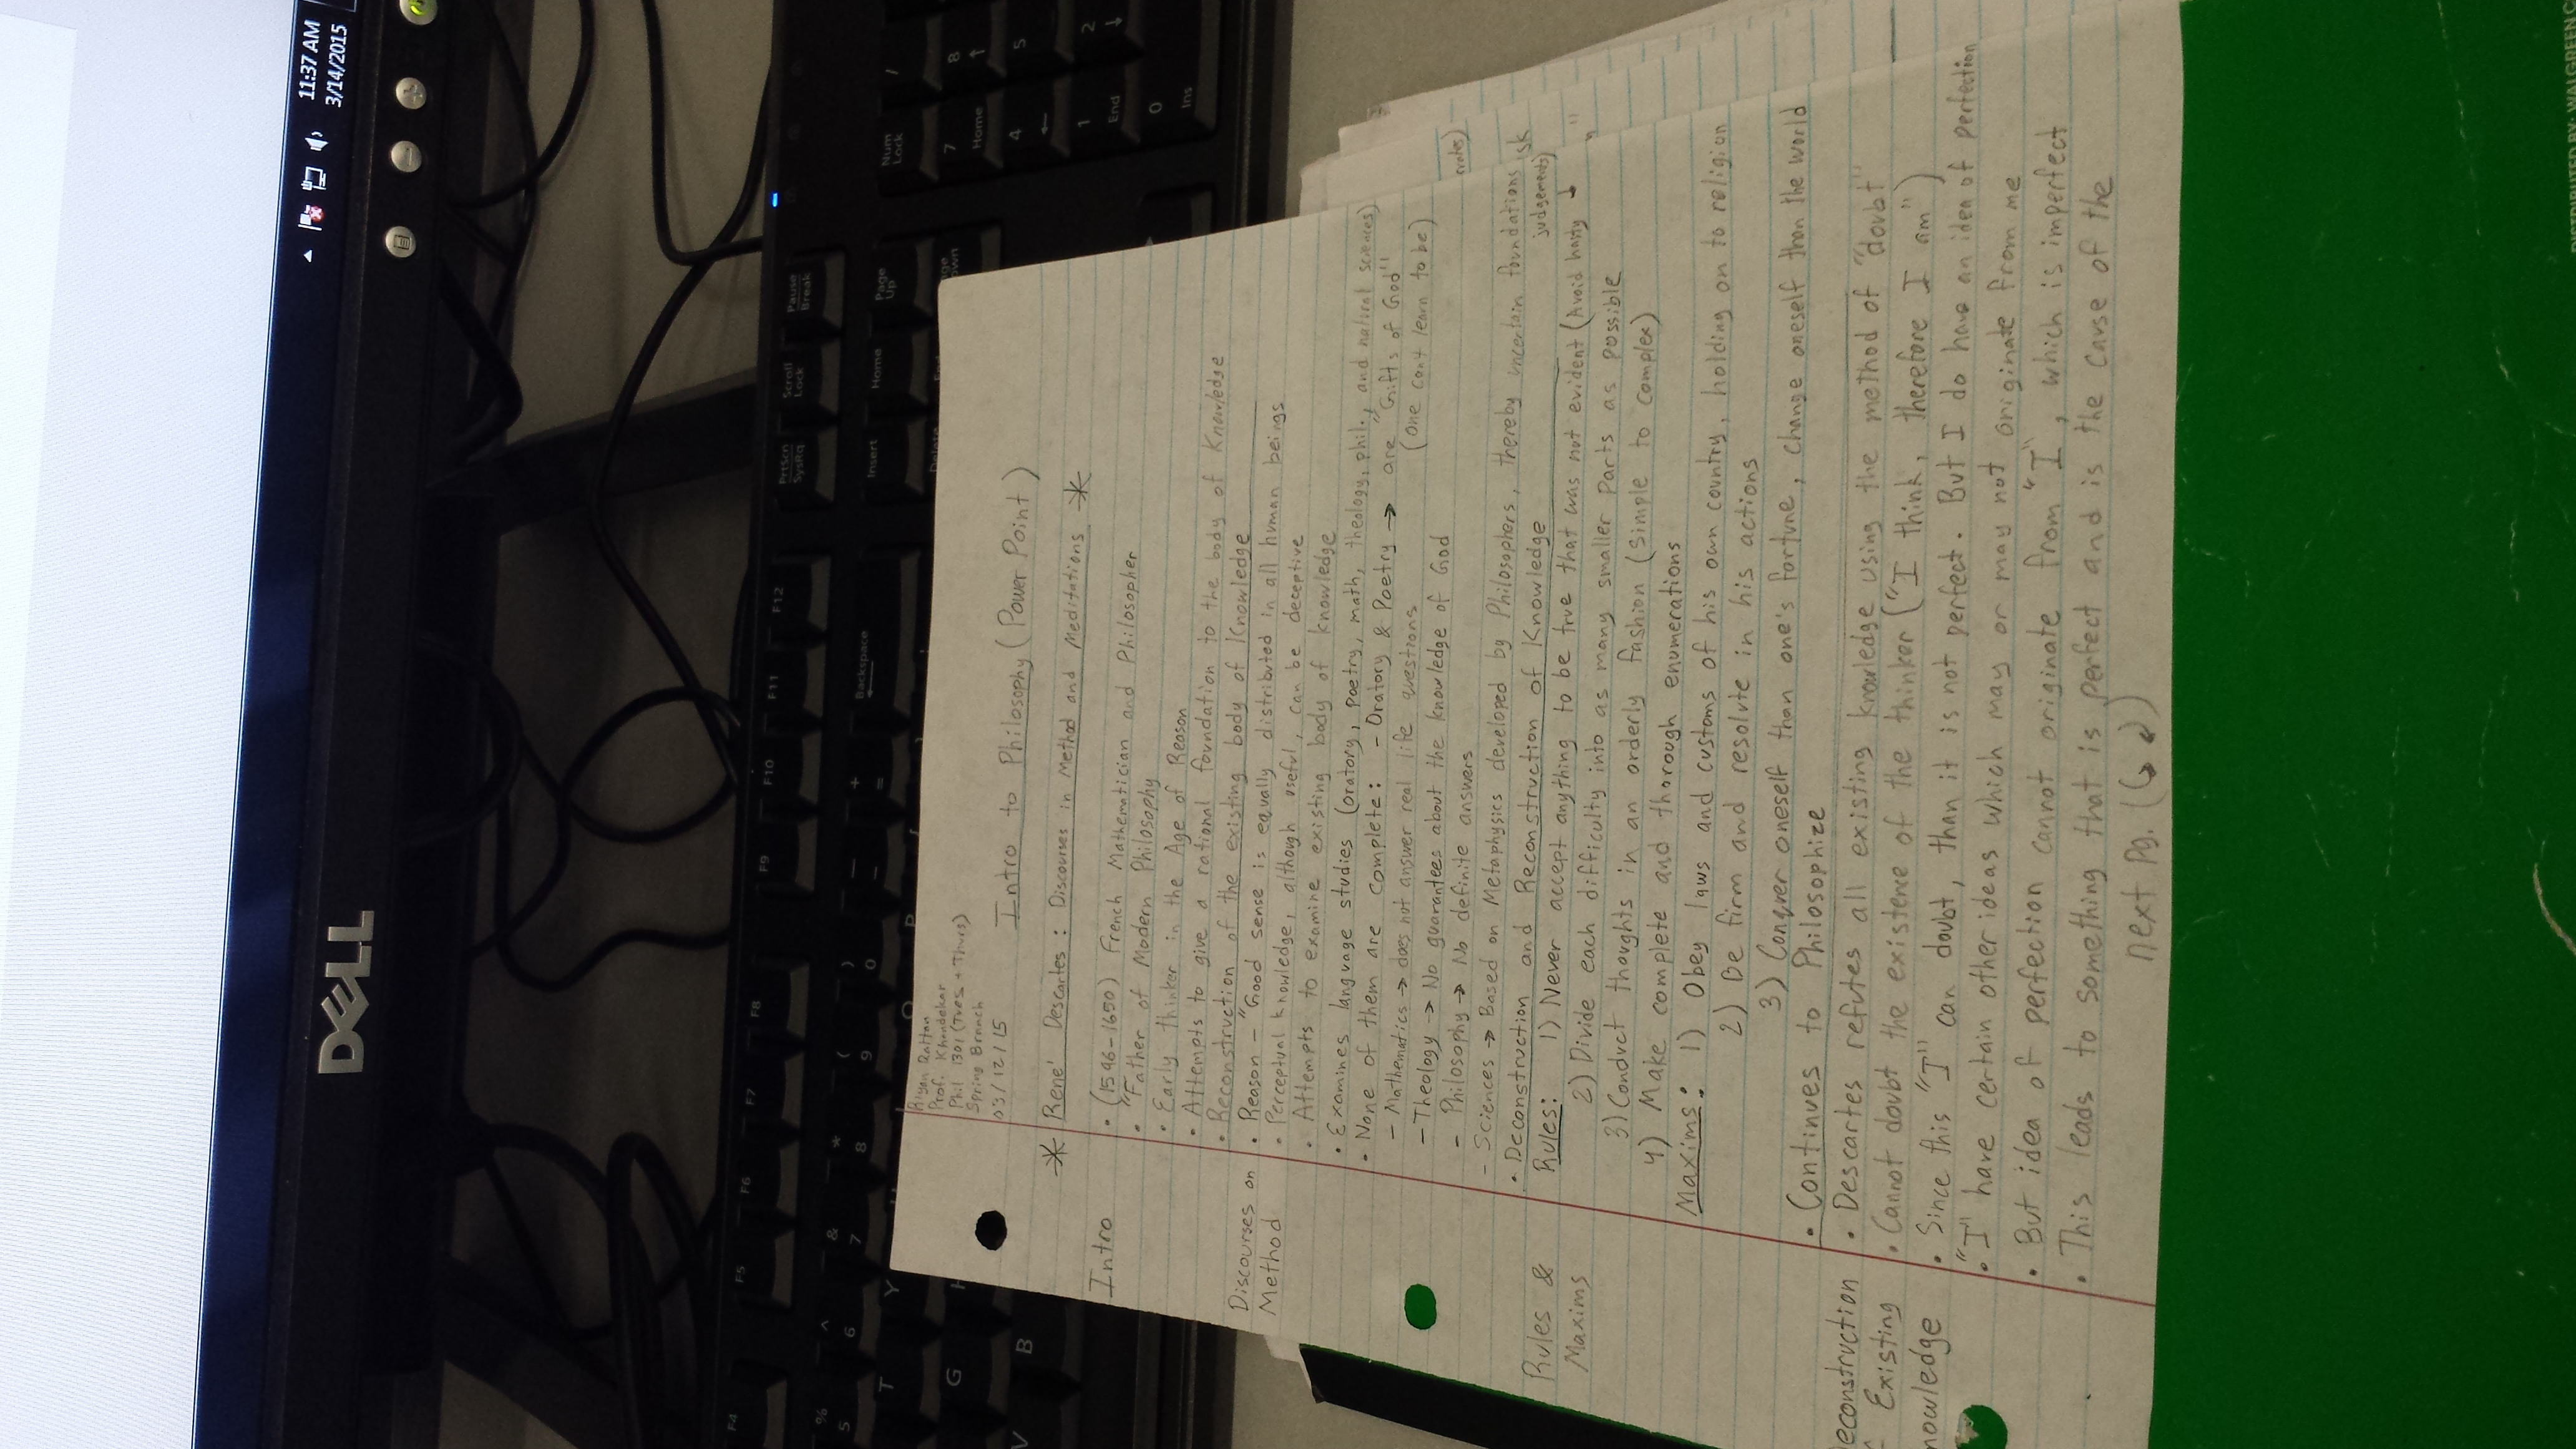 11:37 AM
3/14/2015
DELL
Prtscn
SysRq
Scroll
Lock
Pause
Break
Insert
Home
Page
Up
Num
Lock
/
7
Home
8
4
5
1
End
2
0
Ins
F4
F5
F6
F7
F8
F9
F10
F11
F12
%
5
^
6
&
7
*
8
(
9
)
0
_
-
+
=
Backspace
T
Y
G
V
B
Riyan Rattan
Prof. Khandekar
Phil 1301 (Tues + Thurs)
Spring Branch
03/12/15
Intro to Philosophy (Power Point)
* Rene' Descartes: Discourses in Method and Meditations *
Intro
• (1596-1650) French Mathematician and Philosopher
• "Father of Modern Philosophy
• Early thinker in the Age of Reason
• Attempts to give a rational foundation to the body of Knowledge
• Reconstruction of the existing body of Knowledge
Discourses on Method
• Reason - "Good sense is equally distributed in all human beings
• Perceptual knowledge, although useful, can be deceptive
• Attempts to examine existing body of knowledge
• Examines language studies (oratory, poetry, math, theology, phil., and natural sciences)
• None of them are complete: - Oratory & Poetry → are "Gifts of God"
(one cant learn to be)
- Mathematics → does not answer real life questions
- Theology → No guarantees about the knowledge of God
- Philosophy → No definite answers
- Sciences → Based on Metaphysics developed by Philosophers, thereby uncertain foundations
• Deconstruction and Reconstruction of Knowledge
Rules & Maxims
Rules: 1) Never accept anything to be true that was not evident (Avoid hasty judgements)
2) Divide each difficulty into as many smaller parts as possible
3) Conduct thoughts in an orderly fashion (simple to complex)
4) Make complete and thorough enumerations
Maxims: 1) Obey laws and customs of his own country, holding on to religion
2) Be firm and resolute in his actions
3) Conquer oneself than one's fortune, change oneself than the world
• Continues to Philosophize
econstruction
Existing
nowledge
• Descartes refutes all existing knowledge using the method of "doubt"
• Cannot doubt the existence of the thinker ("I think, therefore I am")
• Since this "I" can doubt, than it is not perfect. But I do have an idea of perfection
• "I" have certain other ideas which may or may not originate from me
• But idea of perfection cannot originate from "I", which is imperfect
• This leads to something that is perfect and is the cause of the
next pg.